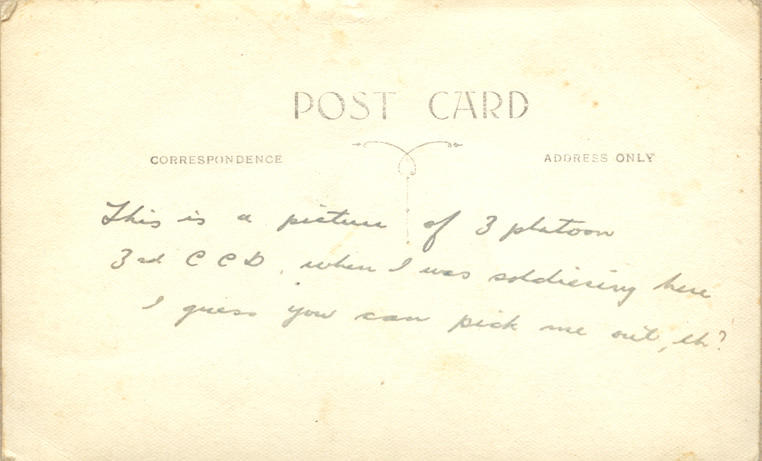 POST CARD
CORRESPONDENCE
ADDRESS ONLY
This is a picture of 3 platoon
3rd C C D, when I was soldiering here
I guess you can pick me out, eh?